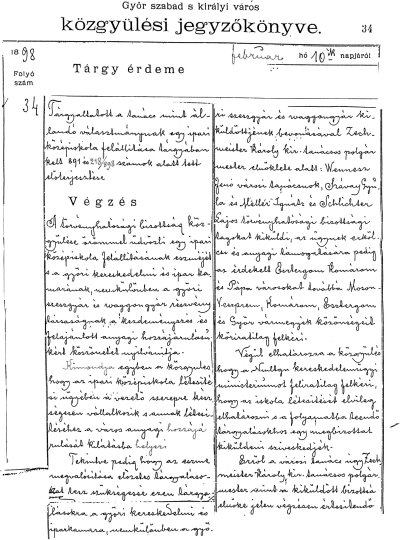 Győr szabad s királyi város
közgyülési jegyzőkönyve.
34
1898
február hó 10-ik napjáról
Folyó
szám
Tárgy érdeme
34
Tárgyaltatott a tanács mint ál-
landó választmánynak egy ipari
középiskola felállitása tárgyában
kelt 891 és számok alatt tett
előterjesztése.
Végzés
A törvényhatósági bizottság köz-
gyülése örömmel üdvözli egy ipari
középiskola felállitásának eszméjét
s a győri kereskedelmi és ipar ka-
marának, nemkülönben a győri
szeszgyár és waggongyár részvény
társaságnak a kezdeményezés és
felajánlott anyagi hozzájárulásu-
kért köszönetét nyilvánitja.
Kimondja egyben a közgyülés
hogy az ipari középiskola létesité-
se ügyében a vezető szerepet kész-
ségesen vállalkozik s annak létesi-
téséhez a város anyagi hozzájá-
rulását kilátásba helyezi
Tekintve pedig hogy az eszme
megvalósitása előzetes tárgyaláso-
kat tesz szükségessé ezen tárgya-
lásokra a győri kereskedelmi és
iparkamara, nemkülönben a győ-
ri szeszgyár és waggongyár kik-
küldöttjének bevonásával Zech-
meister Károly kir. tanácsos polgár
mester elnöklete alatt: Wennesz
Jenő városi tanácsnok, Szávay Gyu-
la és Mellér Ignátz és Schlichter
Lajos törvényhatósági bizottsági
tagokat kiküldi, az ügynek erköl-
csi és anyagi támogatására pedig
az érdekelt Esztergom Komárom
és Pápa városokat továbbá Moson
Veszprém, Komárom, Esztergom
és Győr vármegyék közönségeit
köziratilag felkéri.
Végül elhatározza a közgyülés
hogy a Nmltgu kereskedelemügyi
ministériumot feliratilag felkéri,
hogy az iskola létesitését elvileg
elhatározni s a folyamatba teendő
tárgyalásokhoz egy megbizottat
kiküldeni sziveskedjék.
Erről a városi tanács ugy Zech-
meister Károly kir. tanácsos polgár-
mester mint a kiküldött bizottság
elnöke jelen végzésen értesitendő